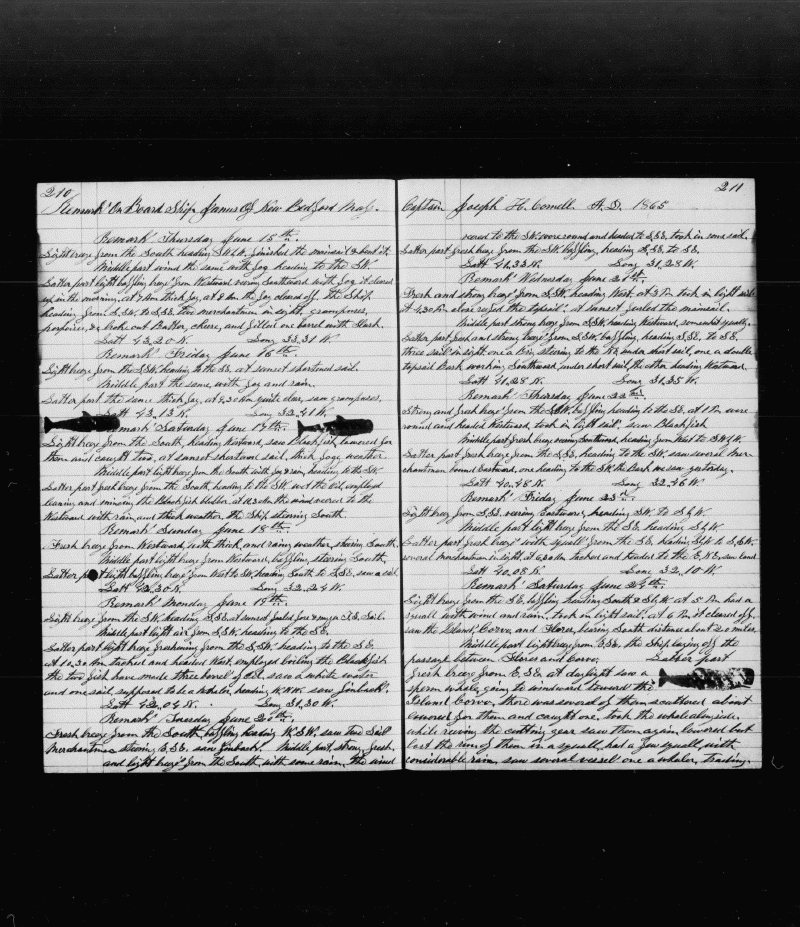 210
Remark's On Board Ship James Of New Bedford Mass.
Remark's Thursday June 15th.
Light breeze from the South heading W.S.W. finished the mainsail & bent it.
Middle part wind the same with fog heading to the SW.
Latter part light baffling breeze from Westward veering Southward with fog it cleared
up in the morning, at 7 Am thick fog, at 8 Am the fog cleared off. the Ship
heading from S.SW. to S.SE. two merchantmen in sight, grampuses,
porpoises, & broke out Butter, cheese, and filled one barrel with flash.
Latt 43,20 N. Long 33,31 W.
Remark's Friday June 16th.
Light breeze from the S.SW. heading to the SE. at sunset shortened sail.
Middle part the same with fog and rain.
Latter part the same thick fog, at 9,30 Am quite clear, saw grampuses.
Latt 43,13 N. Long 32,41 W.
Remark's Saturday June 17th.
Light breeze from the South, heading Westward, saw Blackfish, lowered for
them and caught two, at sunset shortened sail, thick fogy weather
Middle part light breeze from the South with fog & rain, heading to the SW.
Latter part fresh breeze from the South, heading to the SW. wet the oil, employed
leaning and mincing the Blackfish blubber. at 10,30 Am the wind veered to the
Westward with rain, and thick weather the Ship steering South.
Remark's Sunday June 18th.
Fresh breeze from Westward, with thick, and rainy weather, steering South.
Middle part light breeze from Westward, baffling, steering South.
Latter part light baffling breeze from West to SW, heading South to S.SE. saw a sail.
Latt 42,30 N. Long 32,24 W.
Remark's Monday June 19th.
Light breeze from the SW. heading S.SE. at sunset furled fore & mizen T.G. Sail.
Middle part light air from S.SW. heading to the SE.
Latter part light breeze freshening from the S.SW. heading to the SE.
At 10,30 Am tacked and headed West, employed boiling the Blackfish
the two fish have made three barrel of oil. saw a white water
and one sail, supposed to be a whaler, heading W.NW. saw finback's.
Latt 42,04 N. Long 31,30 W.
Remark's Tuesday June 20th.
Fresh breeze from the South, baffling heading W.SW. saw two Sail
Merchantmen steering E.SE. saw finback's. Middle part, strong, fresh,
and light breeze from the South, with some rain, the wind
211
Captain Joseph H. Cornell A.D. 1865
veered to the SW. wore round and headed to S.SE. took in some sail.
Latter part fresh breeze from the SW. baffling, heading S.SE to SE.
Latt 41,33 N. Long 31,28 W.
Remark's Wednesday June 21st.
Fresh and strong breeze from S.SW. heading West. at 3 Pm took in light sails
at 4,30 Pm close reefed the topsail's. at sunset furled the mainsail.
Middle part strong breeze from S.SW. heading Westward, somewhat squally.
Latter part fresh and strong breeze from S.SW. baffling, heading S.SE. to SE.
three sail in sight, one a Brig steering to the NE. under short sail, one a double
topsail Bark working Southward under short sail, the other heading Westward.
Latt 41,28 N. Long 31,35 W.
Remark's Thursday June 22nd.
Strong and fresh breeze from the S.SW. baffling heading to the SE. at 1 Pm wore
round and headed Westward, took in light sail's. saw Blackfish
Middle part fresh breeze veering Southward, heading from West to SW by W.
Latter part fresh breeze from the S.SE. heading to the SW. saw several Mer-
chantmen bound Eastward, one heading to the SW. the Bark we saw yesterday.
Latt 40,48 N. Long 32,46 W.
Remark's Friday June 23rd.
Light breeze from S.SE. veering Eastward, heading SW. to S by W.
Middle part light breeze from the SE. heading S by W.
Latter part fresh breeze with squall's from the SE. heading S by W to S.SW.
several merchantmen in sight. at 6,30 Am tacked and headed to the E.NE. saw land
Latt 40,08 N. Long 32,10 W.
Remark's Saturday June 24th.
Light breeze from the SE. baffling heading South & S by W. at 5 Pm had a
squall with wind and rain, took in light sail's, at 6 Pm it cleared off.
saw the Island's Corvo, and Flores, bearing South distance about 20 miles.
Middle part light breeze from E.SE. the Ship laying off the
passage between Flores and Corvo. Latter part
fresh breeze from E.SE. at daylight saw a
sperm whale, going to windward toward the
Island Corvo, there was several of them scattered about
lowered for them and caught one, took the whale alongside.
while reeving the cutting gear saw them again, lowered but
lost the run of them in a squall, had a few squalls, with
considerable rain. saw several vessel's one a whaler, trading.